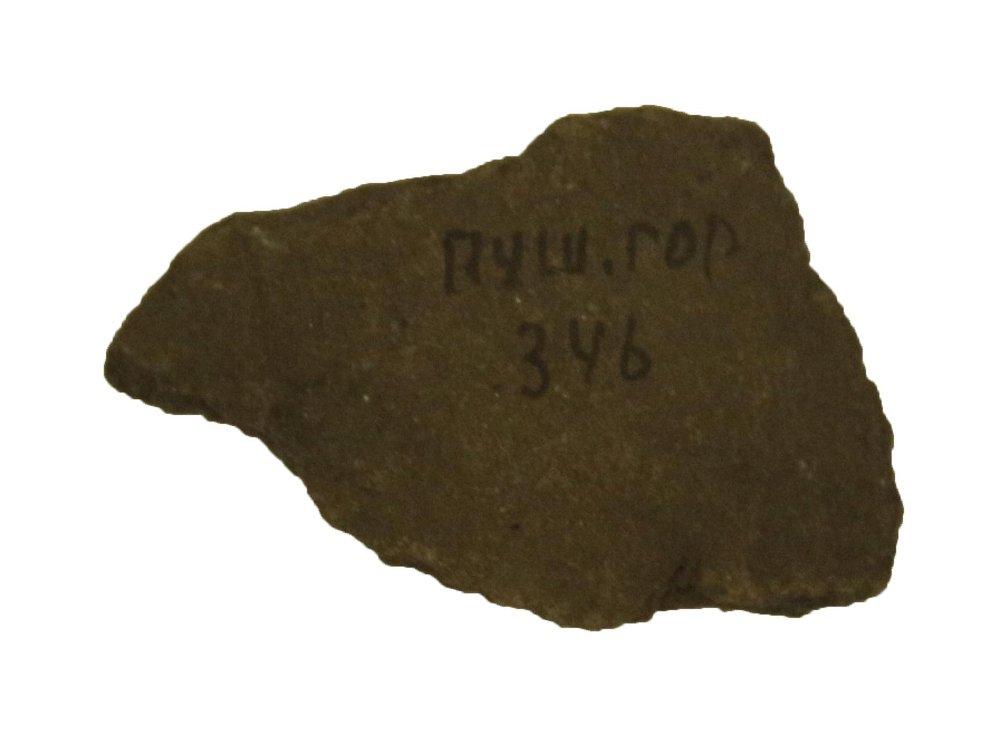 ПУШ.ГОР
346